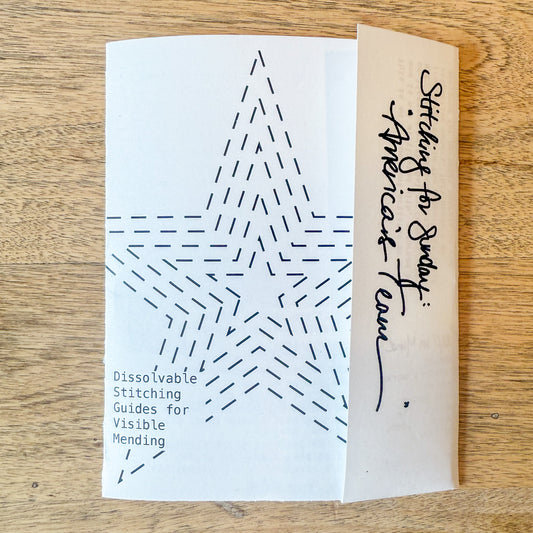 Dissolvable
Stitching
Guides for
Visible
Mending
Stitching for Sunday:
America's Team"